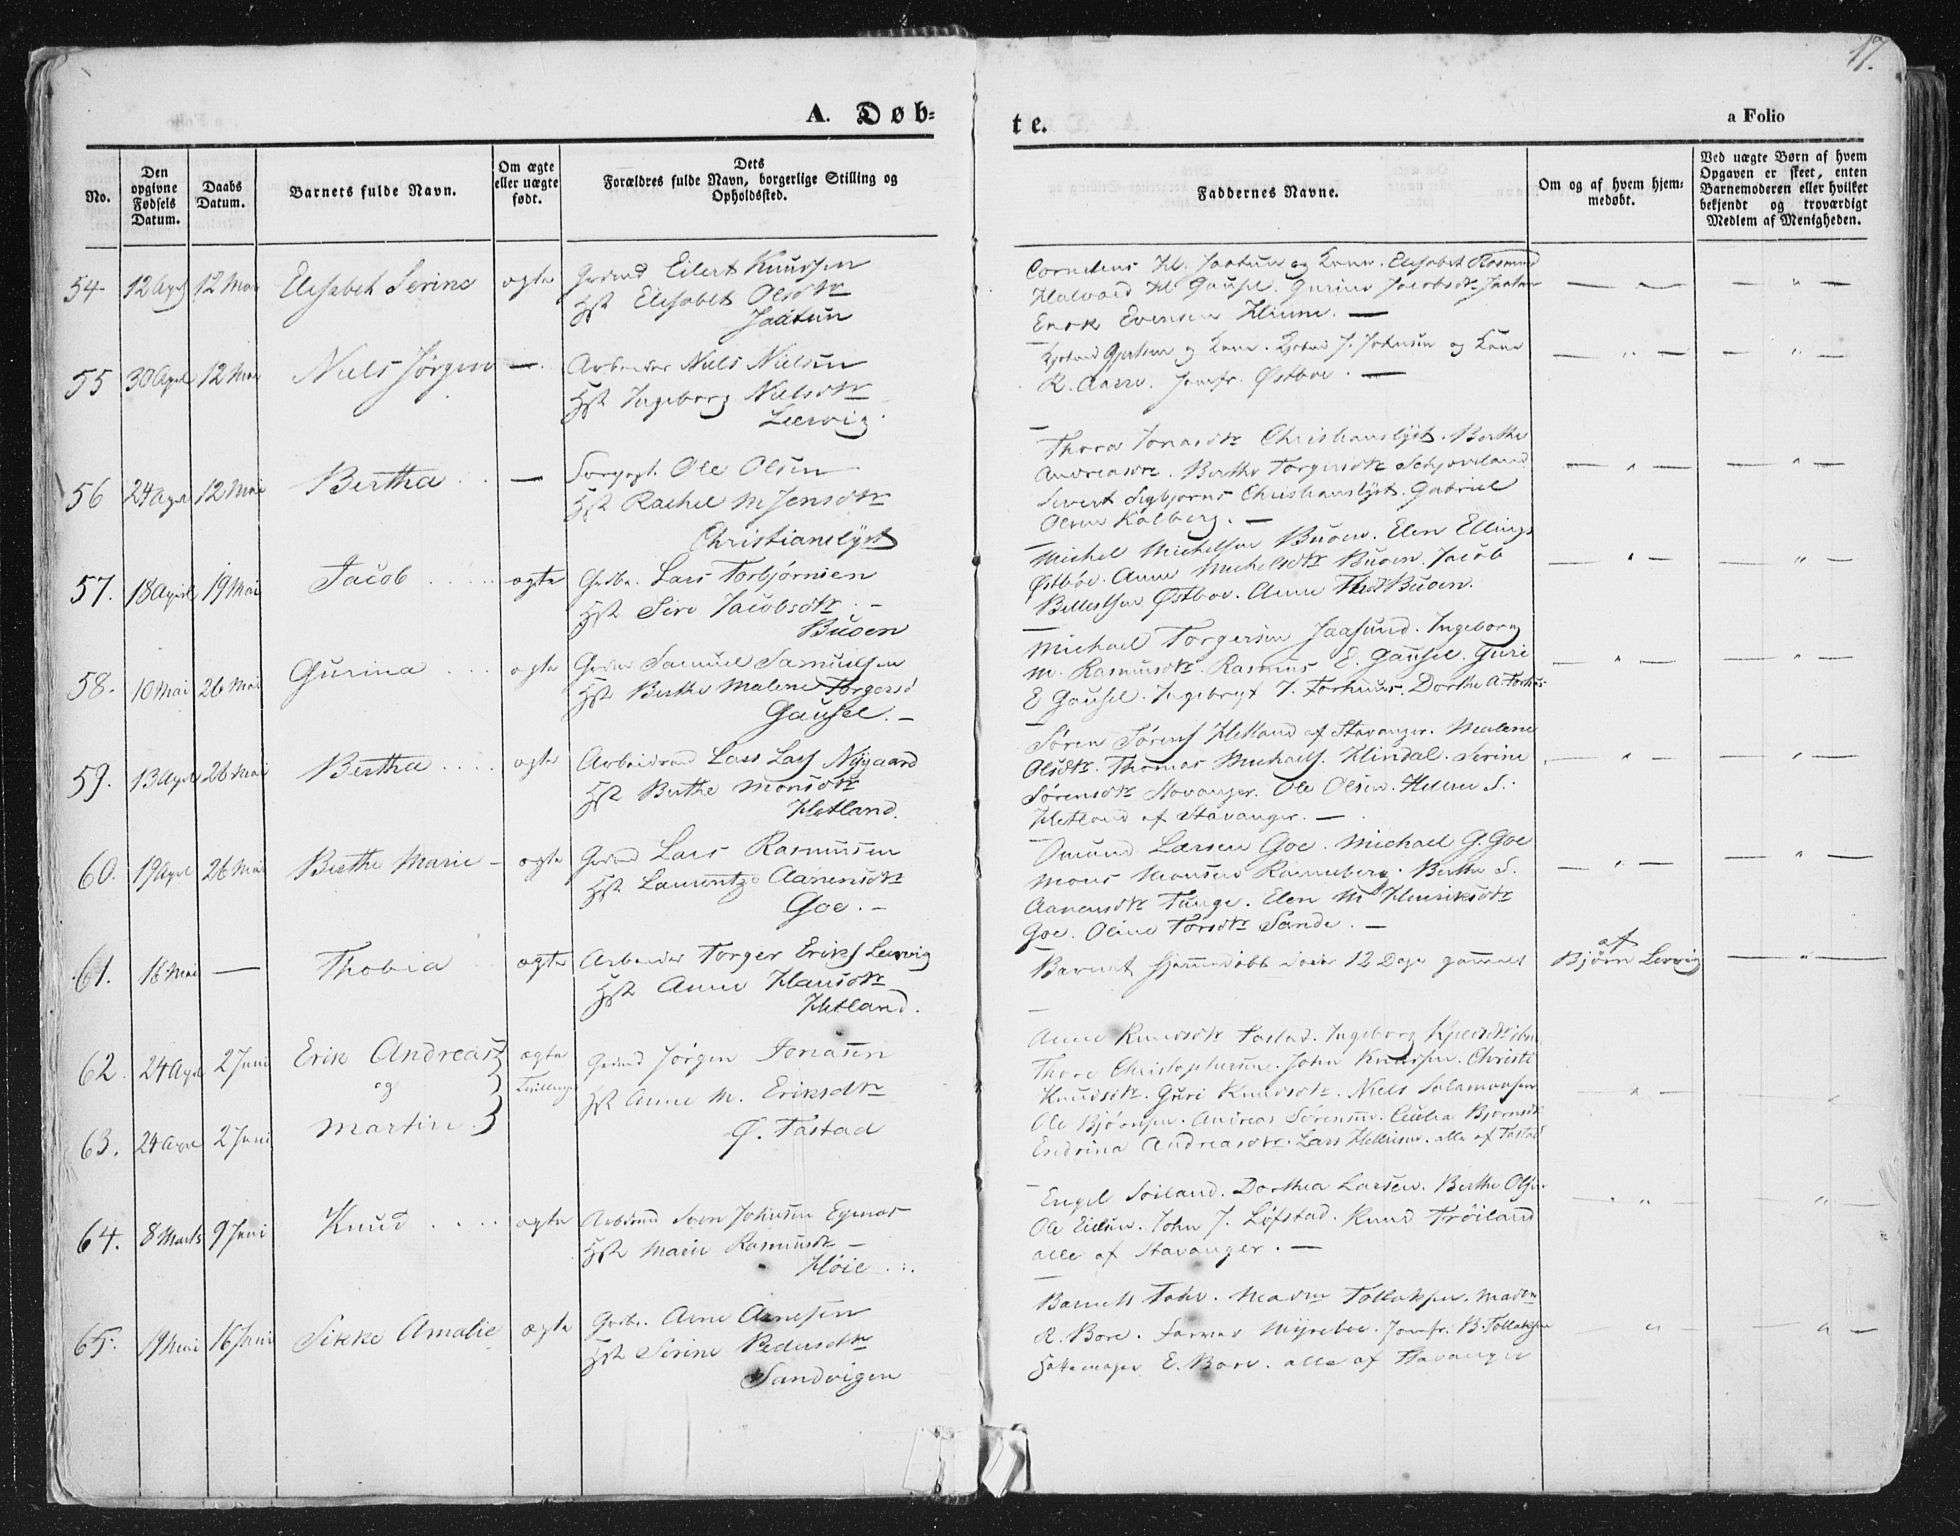 17.
A. Døb-
te.
a Folio
No.
Den opgivne Fødsels Datum.
Daabs Datum.
Barnets fulde Navn.
Om ægte eller uægte født.
Dets Forældres fulde Navn, borgerlige Stilling og Opholdssted.
Faddernes Navne.
Om og af hvem hjemmedøbt.
Ved uægte Børn af hvem Opgaven er skeet, enten Barnemoderen eller hvilket bekjendt og troværdigt Medlem af Menigheden.
54 12 Apr 12 Mai Elisabet Serine ægte Eilert Knudsen
Hst Elisabet Olsdtr
Jaatun
Cornelius H. Jaatun og Kone. Elisabet Rasmusd
Halvard H. Gausel. Gurine Jacobsdtr Jaatun
Enok Evensen Hinne. —
55 30 April 12 Mai Niels Jørgen — Arbeider Niels Nielsen
Hst Ingeborg Nielsdtr
Leervig.
Gjertsen og Kone. J. Johnsen og Kone
R. Aarre. Jomfr. Østboe. —
56 24 Apr 12 Mai Bertha — Ole Olsen
Hst Rachel M Jensdtr
Christianslyst
Thora Jonasdtr Christianslyst. Berthe
Andreasdtr. Berthe Torgersdtr Schjoveland
Sivert Sigbjørns Christianslyst. Gabriel
Olsen Kolberg. —
57. 18 April 19 Mai Jacob ægte Grdbr. Lars Torbjørnsen
Hst Siri Jacobsdtr. —
Buoen
Michel Michelsen Buoen. Elen Ellings
Østboe. Anne Michelsdtr Buoen. Jacob
Østboe. Anne Buoen.
58. 10 Mai 26 Mai Gurina ægte Samuel Samuelsen
Hst Berthe Malene Torgersd
Gausel. —
Michael Torgersen Jaasund. Ingeborg
M. Rasmusdtr. Rasmus E. Gausel. Guri
E Gausel. Ingebregt T. Forhuus. Dorthe A. Forhus
59. 13 April 26 Mai Bertha ægte Arbeidsmd Lars Lars Nygaard
Hst Berthe Monsdtr
Hetland.
Søren Sørens Hetland af Stavanger. Malene
Olsdtr. Thomas Michaels. Hindal. Serine
Sørensdtr Stavanger. Ole Olsen. Helene S.
Hetland af Stavanger. —
60. 19 April 26 Mai Berthe Marie — ægte Lars Rasmussen
Hst Laurentze Aanensdtr
Goe. —
Omund Larsen Goe. Michael G. Goe
Mons Monsen Ranneberg. Berthe S.
Aanensdtr Tunge. Elen M Henriksdtr
Goe. Oline Torsdtr Sande. —
61. 16 Mai — Thobia ægte Arbeider Torger Eriks Leervig
Hst Anne Hansdtr
Hetland.
Barnet hjemmedøbt døde 12 Dage gammelt
af
Bjørn Lervig
62. 24 Apr 2 Juni Erik Andreas ægte Jørgen Jonasen
og Tvillinger Hst Anne M. Eriksdtr
63. 24 Apr 2 Juni Martin. Ø. Tastad
Anne Knudsdtr Tastad. Ingeborg
Thore Christophersen. John Knudsen. Christi
Knudsdtr. Guri Knudsdtr. Niels Salamonsen
Ole Bjørnsen. Andreas Sørensen. Cecilia Bjørnsdtr
Endrina Andreasdtr. Lars Helliesen. alle af Tastad
64. 8 Marts 9 Juni Knud ægte Sven Johnsen Egenes
Hst Marie Rasmusdtr —
Høie
Engel Soiland. Dorthea Larsen. Berthe Olsen
Ole Eielsen. John J. Löfstad. Knud Trøiland
alle af Stavanger. —
65. 19 Mai 16 Juni Sikke Amalie ægte Gbr. Arne Arnesen
Hst Serine Pedersdtr
Sandvigen
Barnets Fader. Madm Tollaksen. Madm
R. Bore. Myreboe. Jomfr. B. Tollaksen
E. Bore. alle af Stavanger